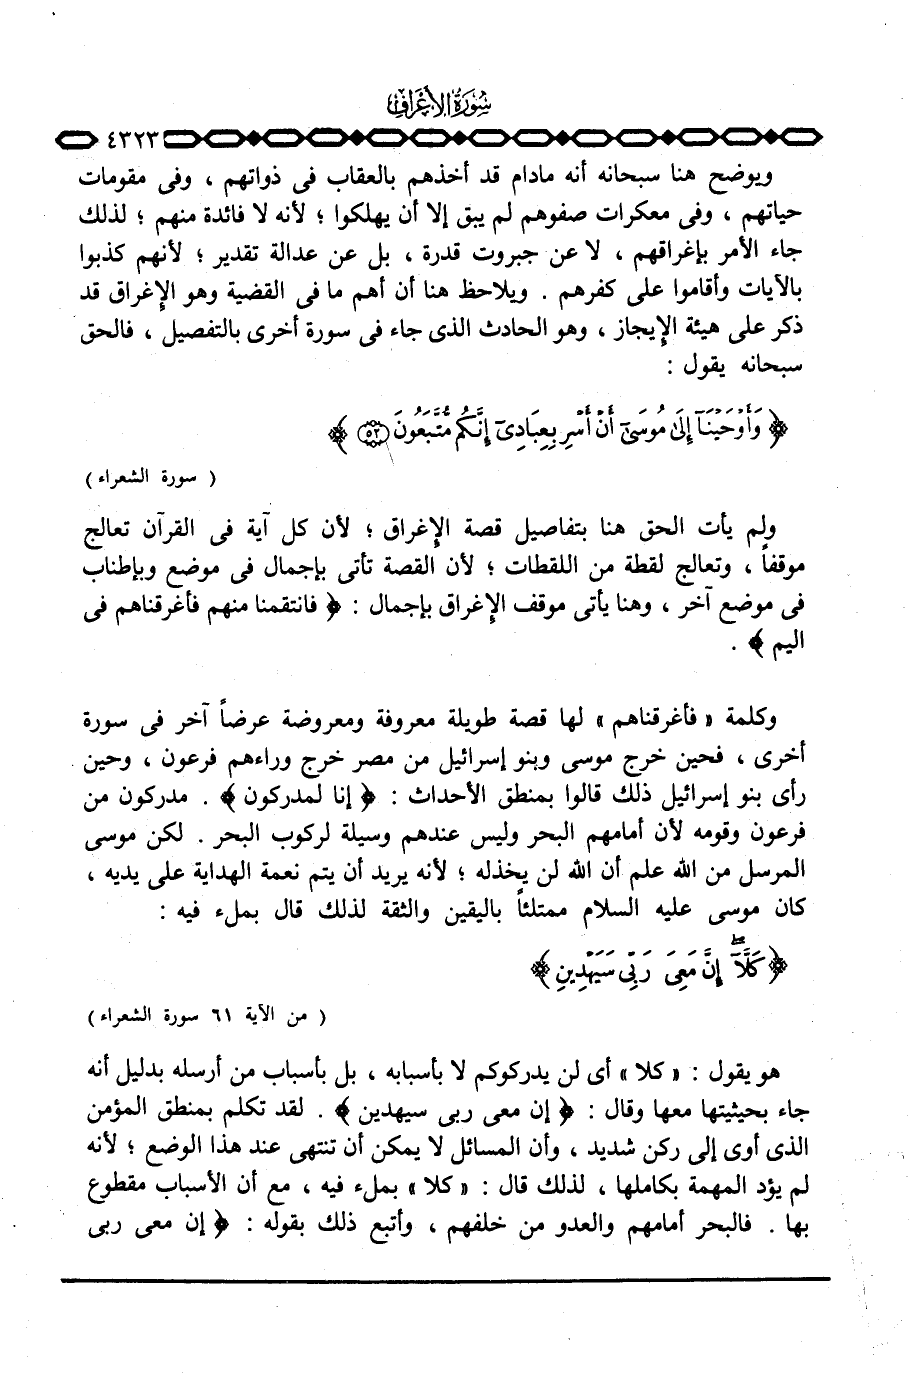 سورة الأعراف
٤٣٢٣
ويوضح هنا سبحانه أنه مادام قد أخذهم بالعقاب فى ذواتهم ، وفى مقومات
حياتهم ، وفى معكرات صفوهم لم يبق إلا أن يهلكوا ؛ لأنه لا فائدة منهم ؛ لذلك
جاء الأمر بإغراقهم ، لا عن جبروت قدرة ، بل عن عدالة تقدير ؛ لأنهم كذبوا
بالآيات وأقاموا على كفرهم . ويلاحظ هنا أن أهم ما فى القضية وهو الإغراق قد
ذكر على هيئة الإيجاز ، وهو الحادث الذى جاء فى سورة أخرى بالتفصيل ، فالحق
سبحانه يقول :
﴿ وَأَوْحَيْنَآ إِلَىٰ مُوسَىٰٓ أَنْ أَسْرِ بِعِبَادِىٓ إِنَّكُم مُّتَّبَعُونَ ٥٢ ﴾
( سورة الشعراء )
ولم يأت الحق هنا بتفاصيل قصة الإغراق ؛ لأن كل آية فى القرآن تعالج
موقفاً ، وتعالج لقطة من اللقطات ؛ لأن القصة تأتى بإجمال فى موضع وبإطناب
فى موضع آخر ، وهنا يأتى موقف الإغراق بإجمال : ﴿ فانتقمنا منهم فأغرقناهم فى
اليم ﴾ .
وكلمة « فأغرقناهم » لها قصة طويلة معروفة ومعروضة عرضاً آخر فى سورة
أخرى ، فحين خرج موسى وبنو إسرائيل من مصر خرج وراءهم فرعون ، وحين
رأى بنو إسرائيل ذلك قالوا بمنطق الأحداث : ﴿ إنا لمدركون ﴾ . مدركون من
فرعون وقومه لأن أمامهم البحر وليس عندهم وسيلة لركوب البحر . لكن موسى
المرسل من الله علم أن الله لن يخذله ؛ لأنه يريد أن يتم نعمة الهداية على يديه ،
كان موسى عليه السلام ممتلئاً باليقين والثقة لذلك قال بملء فيه :
﴿ كَلَّآ ۖ إِنَّ مَعِىَ رَبِّى سَيَهْدِينِ ﴾
( من الآية ٦١ سورة الشعراء )
هو يقول : « كلا » أى لن يدركوكم لا بأسبابه ، بل بأسباب من أرسله بدليل أنه
جاء بحيثيتها معها وقال : ﴿ إن معى ربى سيهدين ﴾ . لقد تكلم بمنطق المؤمن
الذى أوى إلى ركن شديد ، وأن المسائل لا يمكن أن تنتهى عند هذا الوضع ؛ لأنه
لم يؤد المهمة بكاملها ، لذلك قال : « كلا » بملء فيه ، مع أن الأسباب مقطوع
بها . فالبحر أمامهم والعدو من خلفهم ، وأتبع ذلك بقوله : ﴿ إن معى ربى